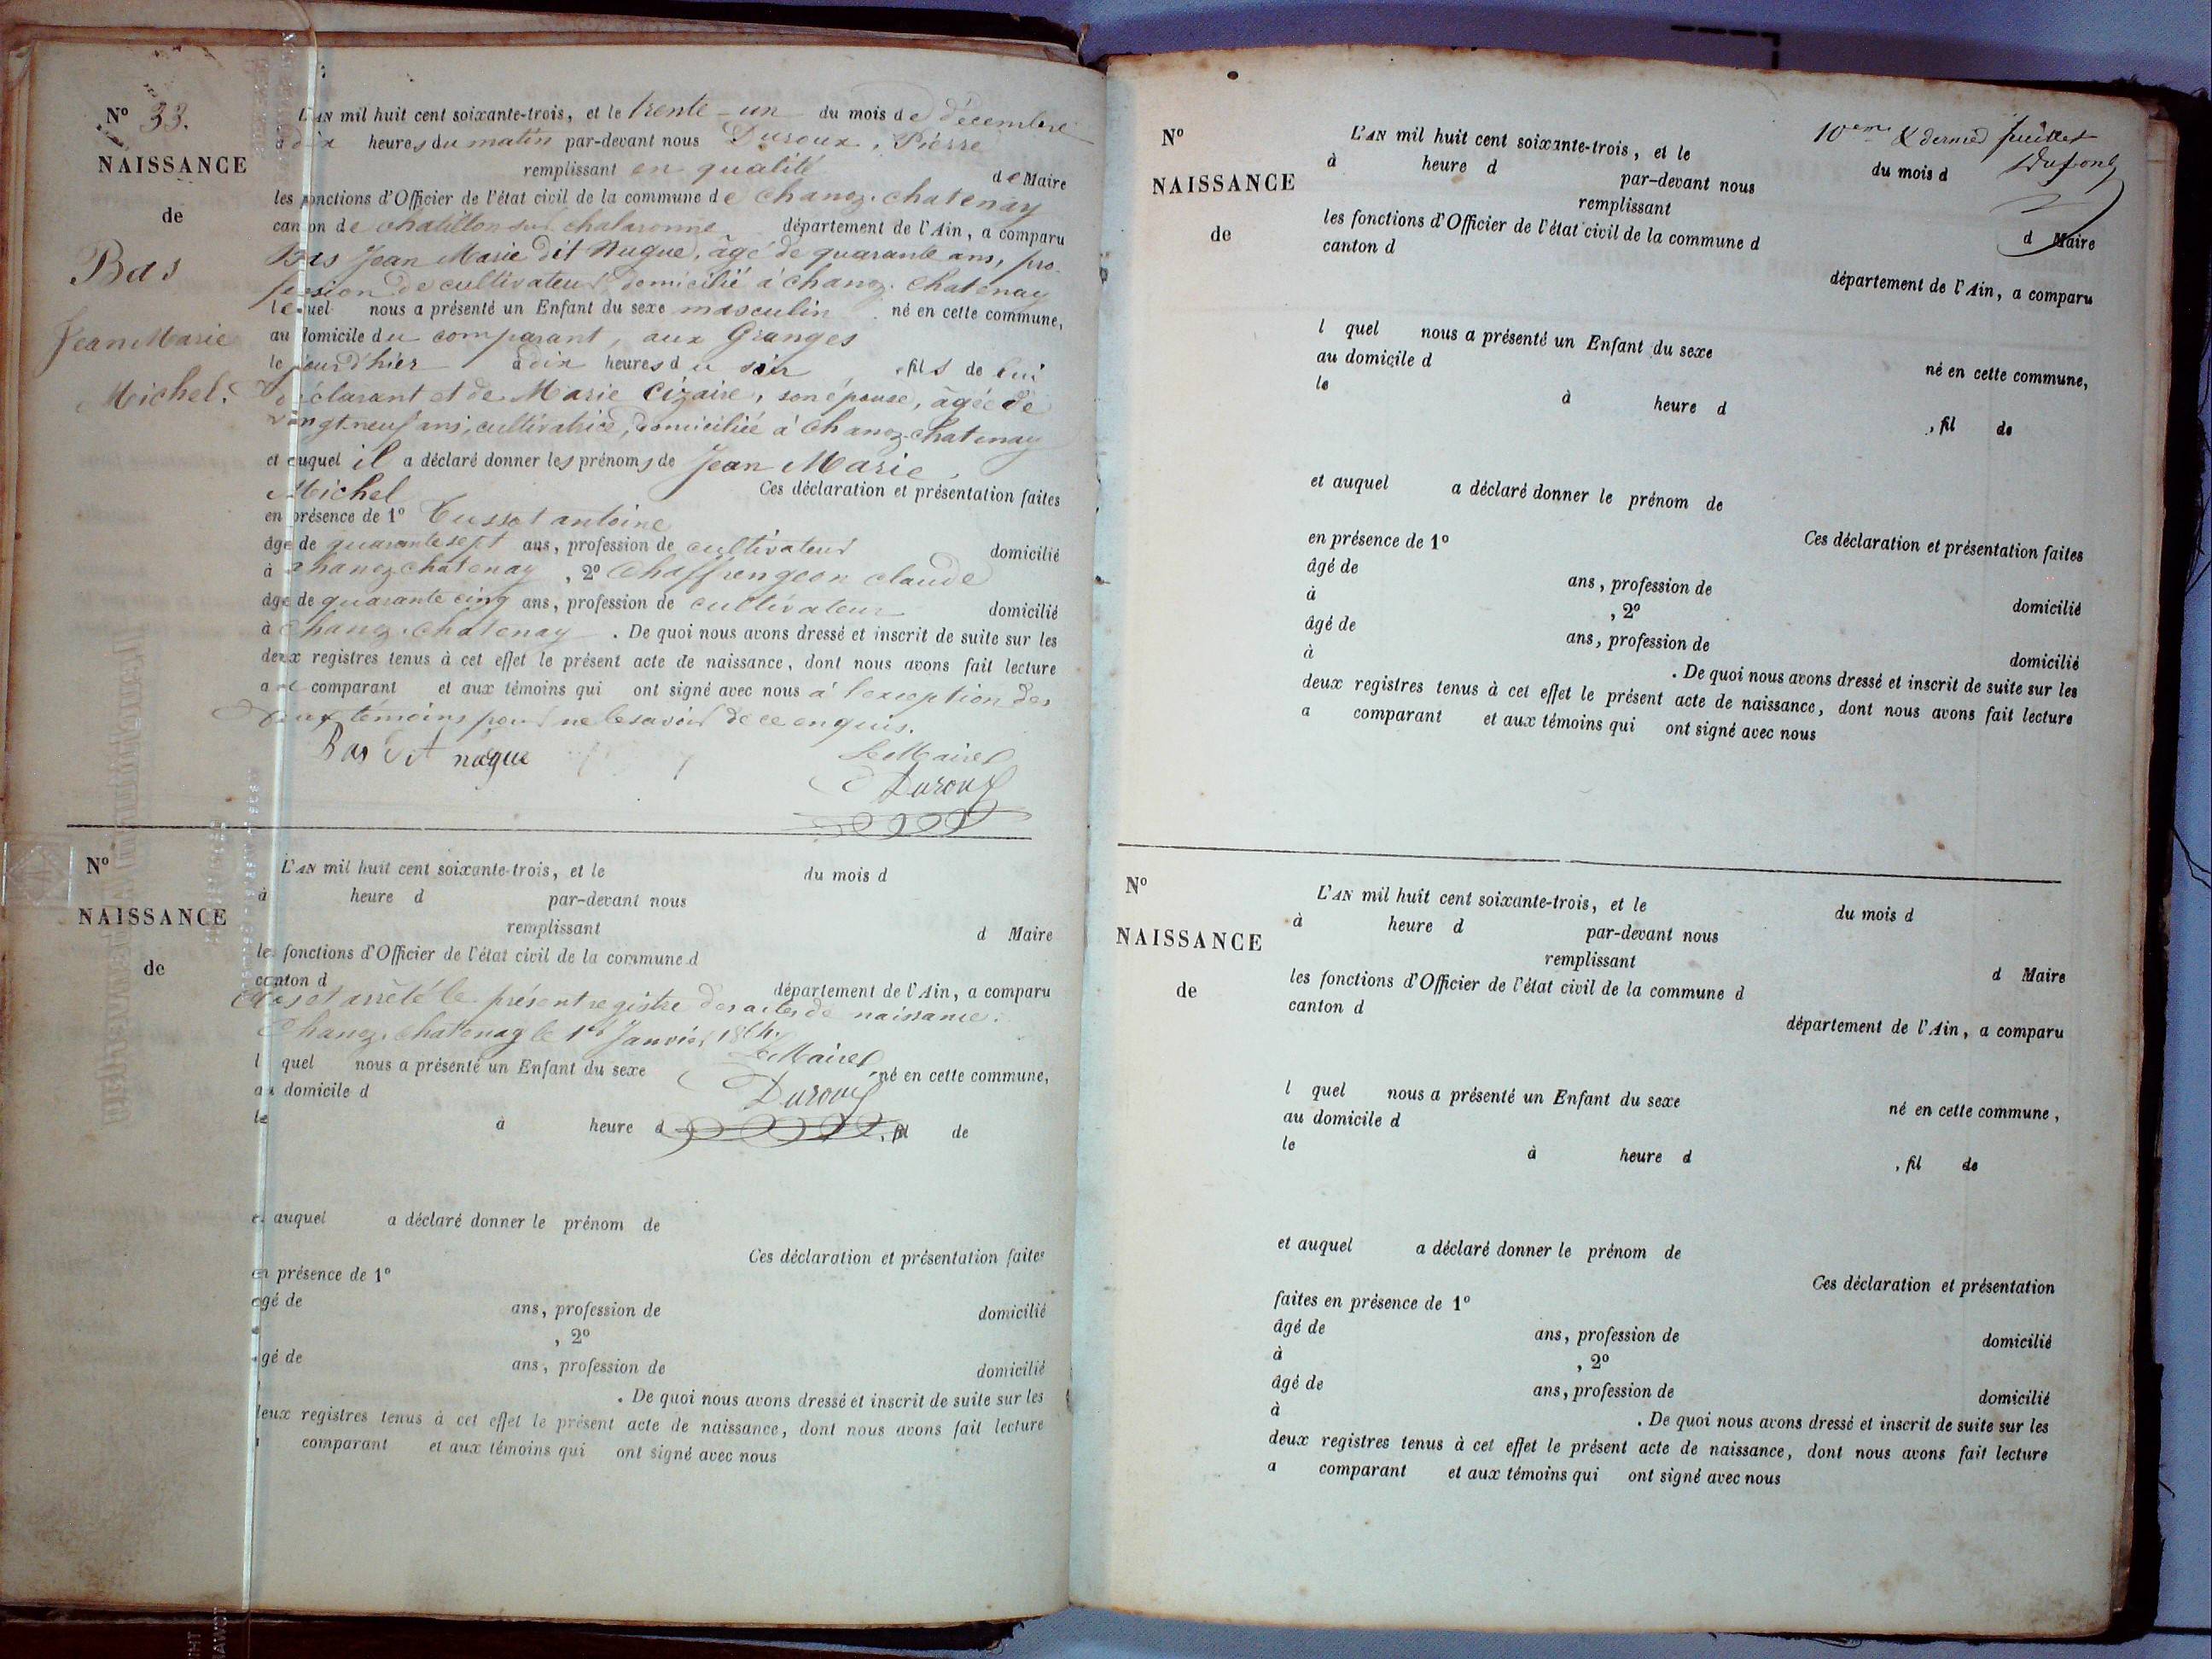 N° 33.
NAISSANCE
de
Bas
Jean Marie
Michel.
L'AN mil huit cent soixante-trois, et le trente-un du mois de décembre
à dix heures du matin par-devant nous Duroux, Pierre
remplissant en qualité de Maire
les fonctions d'Officier de l'état civil de la commune de Chanoz-Chatenay
canton de Chatillon sur Chalaronne département de l'Ain, a comparu
Bas Jean Marie dit Nugue, âgé de quarante ans, pro-
fession de cultivateur domicilié à Chanoz-Chatenay
lequel nous a présenté un Enfant du sexe masculin né en cette commune,
au domicile du comparant, aux Granges
le jour d'hier à dix heures du soir, fils de lui
déclarant et de Marie Cizaire, son épouse, âgée de
vingt-neuf ans, cultivatrice, domiciliée à Chanoz-Chatenay
et auquel il a déclaré donner les prénoms de Jean Marie
Michel Ces déclaration et présentation faites
en présence de 1° Cussot antoine
âgé de quarante sept ans, profession de cultivateur domicilié
à Chanoz Chatenay, 2° Chaffrengeon claude
âgé de quarante cinq ans, profession de cultivateur domicilié
à Chanoz-Chatenay. De quoi nous avons dressé et inscrit de suite sur les
deux registres tenus à cet effet le présent acte de naissance, dont nous avons fait lecture
au comparant et aux témoins qui ont signé avec nous à l'exception des
deux témoins pour ne le savoir de ce enquis.
Bas dit nugue
Le Maire
Duroux
N°
NAISSANCE
de
L'AN mil huit cent soixante-trois, et le du mois d
à heure d par-devant nous
remplissant d Maire
les fonctions d'Officier de l'état civil de la commune d
canton d département de l'Ain, a comparu
Clos et arrêté le présent registre des actes de naissance.
Chanoz-Chatenay le 1er Janvier 1864.
Le Maire
l quel nous a présenté un Enfant du sexe né en cette commune,
au domicile d
Duroux
le à heure d , fil de
et auquel a déclaré donner le prénom de
Ces déclaration et présentation faites
en présence de 1°
âgé de ans, profession de domicilié
, 2°
âgé de ans, profession de domicilié
. De quoi nous avons dressé et inscrit de suite sur les
deux registres tenus à cet effet le présent acte de naissance, dont nous avons fait lecture
comparant et aux témoins qui ont signé avec nous
10eme & dernier feuillet
N°
NAISSANCE
de
L'AN mil huit cent soixante-trois, et le du mois d
à heure d par-devant nous
remplissant d Maire
les fonctions d'Officier de l'état civil de la commune d
canton d département de l'Ain, a comparu
l quel nous a présenté un Enfant du sexe né en cette commune,
au domicile d
le à heure d , fil de
et auquel a déclaré donner le prénom de
Ces déclaration et présentation faites
en présence de 1°
âgé de ans, profession de domicilié
à , 2°
âgé de ans, profession de domicilié
à . De quoi nous avons dressé et inscrit de suite sur les
deux registres tenus à cet effet le présent acte de naissance, dont nous avons fait lecture
a comparant et aux témoins qui ont signé avec nous
N°
NAISSANCE
de
L'AN mil huit cent soixante-trois, et le du mois d
à heure d par-devant nous
remplissant d Maire
les fonctions d'Officier de l'état civil de la commune d
canton d département de l'Ain, a comparu
l quel nous a présenté un Enfant du sexe né en cette commune,
au domicile d
le à heure d , fil de
et auquel a déclaré donner le prénom de
Ces déclaration et présentation
faites en présence de 1°
âgé de ans, profession de domicilié
à , 2°
âgé de ans, profession de domicilié
à . De quoi nous avons dressé et inscrit de suite sur les
deux registres tenus à cet effet le présent acte de naissance, dont nous avons fait lecture
a comparant et aux témoins qui ont signé avec nous